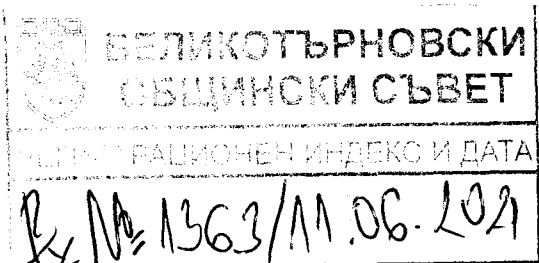 ВЕЛИКОТЪРНОВСКИ
ОБЩИНСКИ СЪВЕТ
РЕГИСТРАЦИОНЕН ИНДЕКС И ДАТА
Вх № 1363/11.06.2021